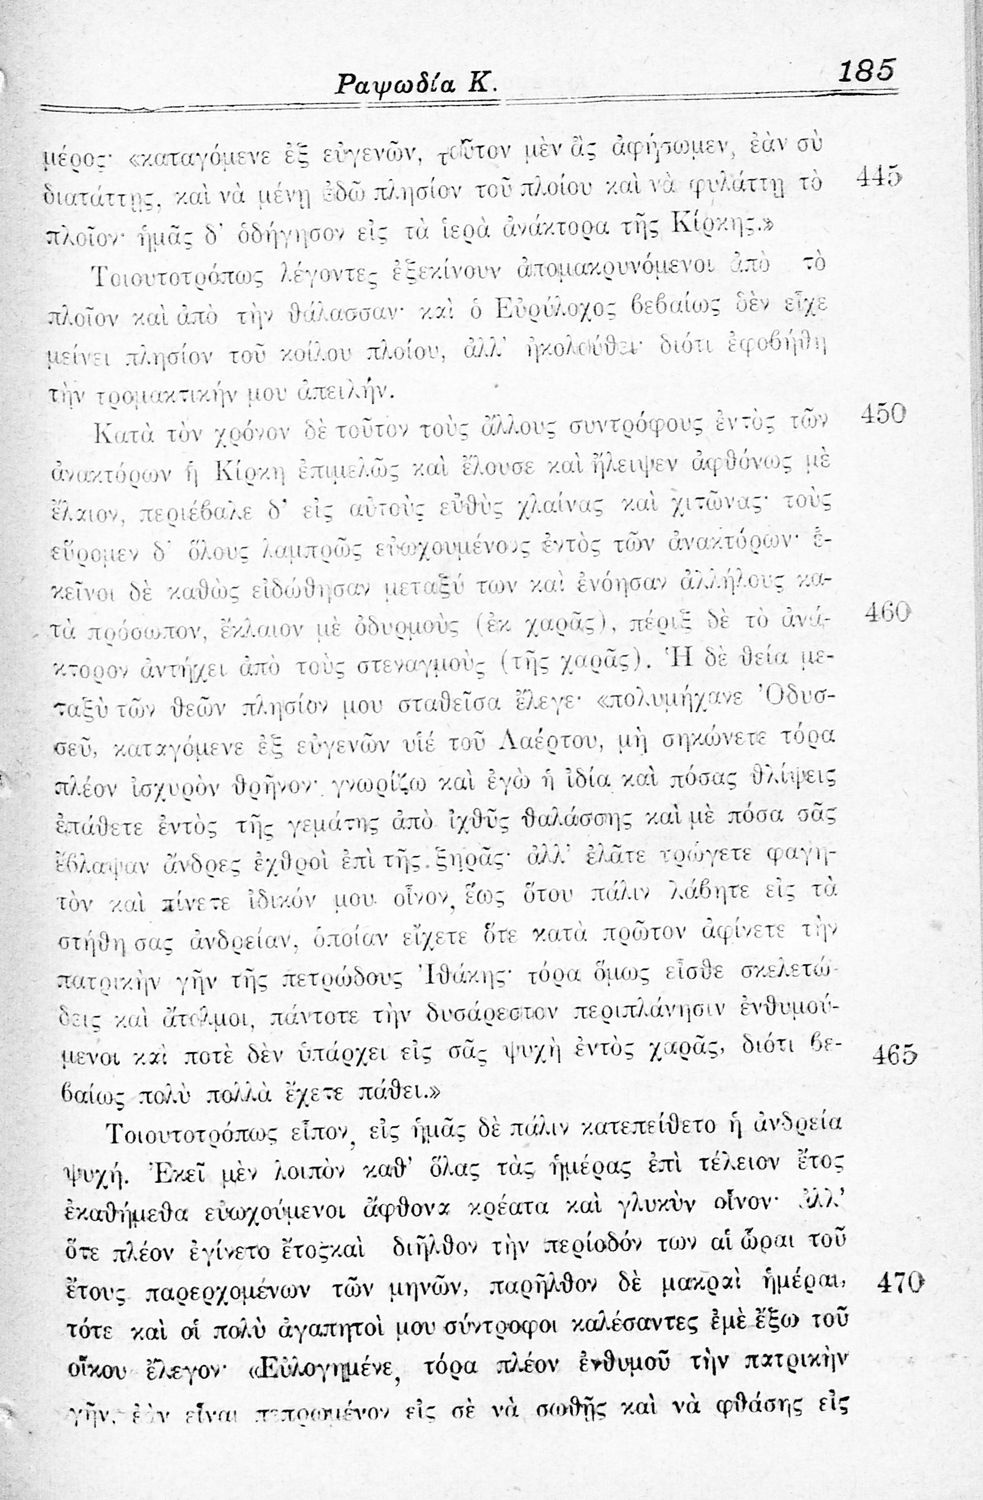 Ραψωδία Κ.
185
μέρος· «καταγόμενε ἐξ εὐγενῶν, τοῦτον μὲν ἂς ἀφήσωμεν, ἐὰν σὺ
διατάττῃς, καὶ νὰ μένῃ ἐδῶ πλησίον τοῦ πλοίου καὶ νὰ φυλάττῃ τὸ
445
πλοῖον· ἡμᾶς δ' ὁδήγησον εἰς τὰ ἱερὰ ἀνάκτορα τῆς Κίρκης.»
Τοιουτοτρόπως λέγοντες ἐξεκίνουν ἀπομακρυνόμενοι ἀπὸ τὸ
πλοῖον καὶ ἀπὸ τὴν θάλασσαν· καὶ ὁ Εὐρύλοχος βεβαίως δὲν εἶχε
μείνει πλησίον τοῦ κοίλου πλοίου, ἀλλ' ἠκολούθει· διότι ἐφοβήθη
τὴν τρομακτικήν μου ἀπειλήν.
Κατὰ τὸν χρόνον δὲ τοῦτον τοὺς ἄλλους συντρόφους ἐντὸς τῶν
450
ἀνακτόρων ἡ Κίρκη ἐπιμελῶς καὶ ἔλουσε καὶ ἤλειψεν ἀφθόνως μὲ
ἔλαιον, περιέβαλε δ' εἰς αὐτοὺς εὐθὺς χλαίνας καὶ χιτῶνας· τοὺς
εὕρομεν δ' ὅλους λαμπρῶς εὐωχουμένους ἐντὸς τῶν ἀνακτόρων· ἐ-
κεῖνοι δὲ καθὼς εἰδώθησαν μεταξύ των καὶ ἐνόησαν ἀλλήλους κα-
τὰ πρόσωπον, ἔκλαιον μὲ ὀδυρμοὺς (ἐκ χαρᾶς), πέριξ δὲ τὸ ἀνά-
460
κτορον ἀντήχει ἀπὸ τοὺς στεναγμοὺς (τῆς χαρᾶς). Ἡ δὲ θεία με-
ταξὺ τῶν θεῶν πλησίον μου σταθεῖσα ἔλεγε· «πολυμήχανε Ὀδυσ-
σεῦ, καταγόμενε ἐξ εὐγενῶν υἱέ τοῦ Λαέρτου, μὴ σηκώνετε τόρα
πλέον ἰσχυρὸν θρῆνον· γνωρίζω καὶ ἐγὼ ἡ ἰδία καὶ πόσας θλίψεις
ἐπάθετε ἐντὸς τῆς γεμάτης ἀπὸ ἰχθῦς θαλάσσης καὶ μὲ πόσα σᾶς
ἔβλαψαν ἄνδρες ἐχθροὶ ἐπὶ τῆς ξηρᾶς· ἀλλ' ἐλᾶτε τρώγετε φαγη-
τὸν καὶ πίνετε ἰδικόν μου οἶνον, ἕως ὅτου πάλιν λάβητε εἰς τὰ
στήθη σας ἀνδρείαν, ὁποίαν εἴχετε ὅτε κατὰ πρῶτον ἀφίνετε τὴν
πατρικὴν γῆν τῆς πετρώδους Ἰθάκης· τόρα ὅμως εἶσθε σκελετώ-
δεις καὶ ἄτολμοι, πάντοτε τὴν δυσάρεστον περιπλάνησιν ἐνθυμού-
μενοι καὶ ποτὲ δὲν ὑπάρχει εἰς σᾶς ψυχὴ ἐντὸς χαρᾶς, διότι βε-
465
βαίως πολὺ πολλὰ ἔχετε πάθει.»
Τοιουτοτρόπως εἶπον, εἰς ἡμᾶς δὲ πάλιν κατεπείθετο ἡ ἀνδρεία
ψυχή. Ἐκεῖ μὲν λοιπὸν καθ' ὅλας τὰς ἡμέρας ἐπὶ τέλειον ἔτος
ἐκαθήμεθα εὐωχούμενοι ἄφθονα κρέατα καὶ γλυκὺν οἶνον· ἀλλ'
ὅτε πλέον ἐγίνετο ἔτοςκαὶ διῆλθον τὴν περίοδόν των αἱ ὧραι τοῦ
ἔτους παρερχομένων τῶν μηνῶν, παρῆλθον δὲ μακραὶ ἡμέραι,
470
τότε καὶ οἱ πολὺ ἀγαπητοὶ μου σύντροφοι καλέσαντες ἐμὲ ἔξω τοῦ
οἴκου ἔλεγον· «Εὐλογημένε, τόρα πλέον ἐνθυμοῦ τὴν πατρικὴν
γῆν, ἐὰν εἶναι πεπρωμένον εἰς σὲ νὰ σωθῇς καὶ νὰ φθάσῃς εἰς